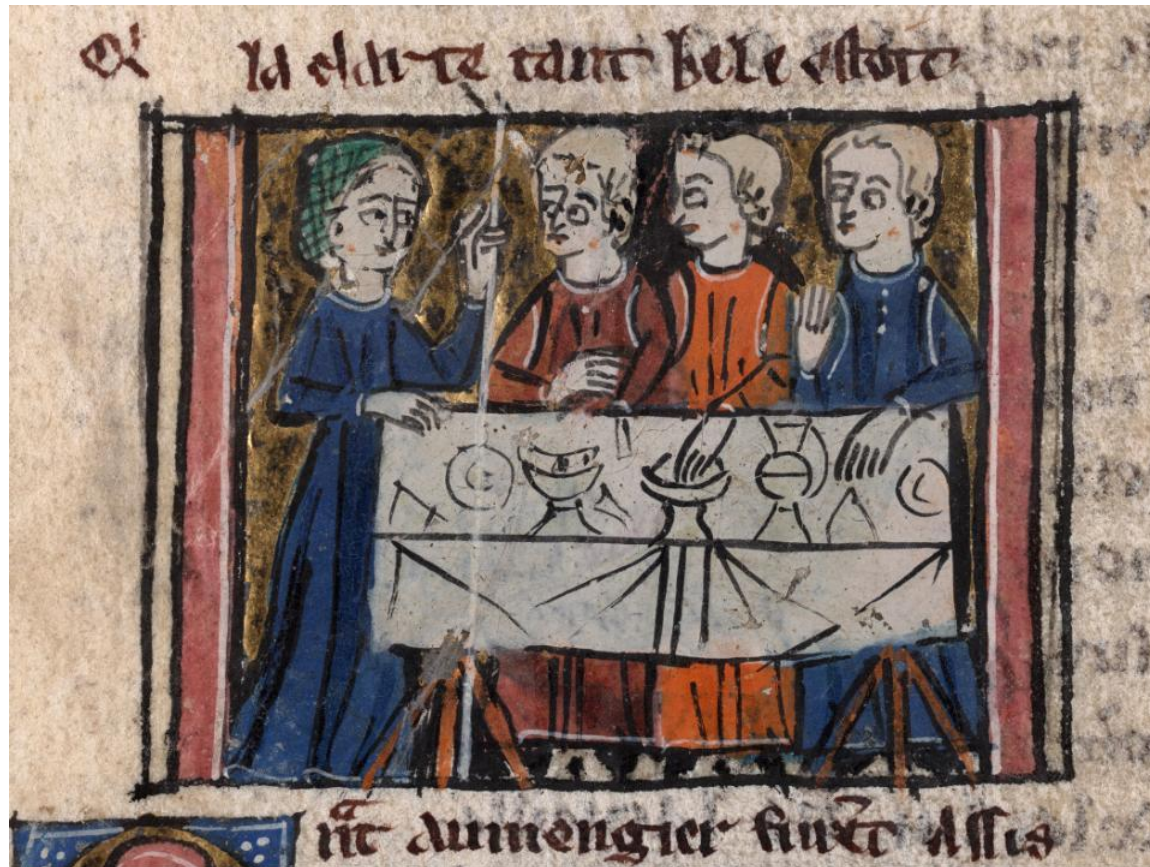 Q' la clarte tant bele estoit
nt au mengier furent Assis